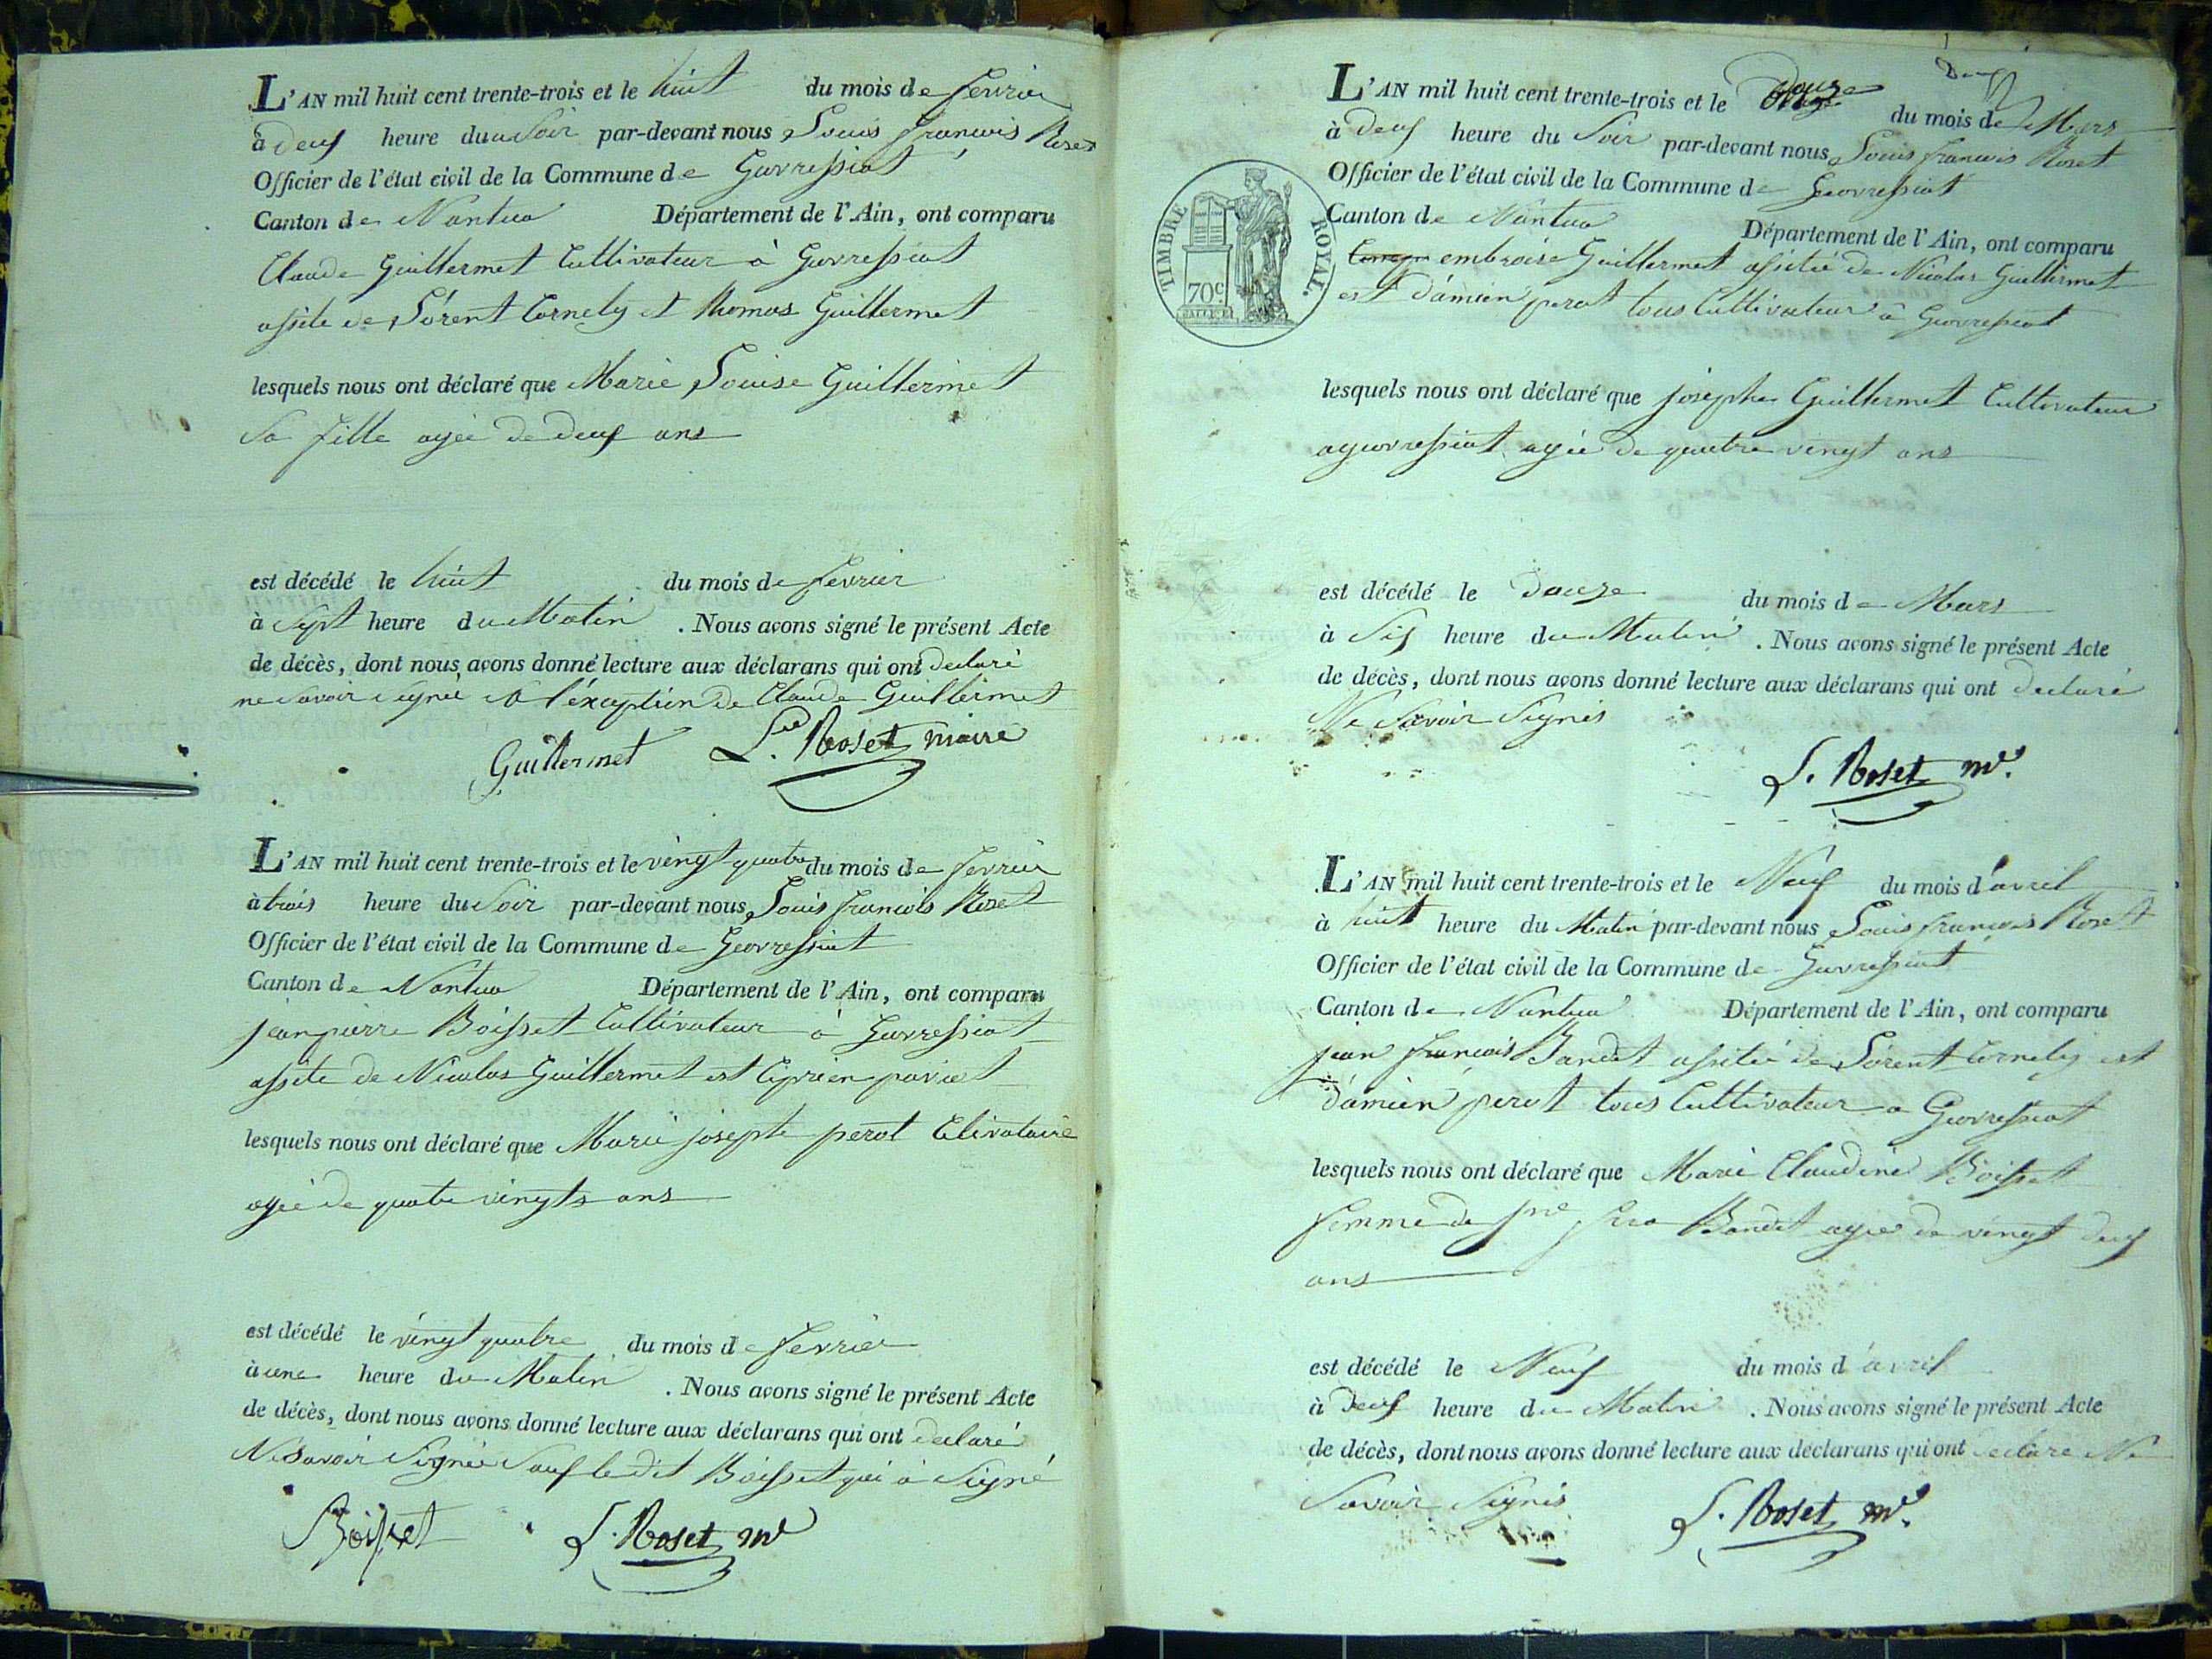 L'AN mil huit cent trente-trois et le huit du mois de fevrier
à deux heure du Soir par-devant nous Louis francois Roset
Officier de l'état civil de la Commune de Gevressiat
Canton de Nantua Département de l'Ain, ont comparu
Claude Guillermet Cultivateur à Gevressiat
assite de Lorent Cornely et thomas Guillermet
lesquels nous ont déclaré que Marie Louise Guillermet
Sa fille agée de deux ans
est décédé le huit du mois de fevrier
à Sept heure du Matin . Nous avons signé le présent Acte
de décès, dont nous avons donné lecture aux déclarans qui ont declaré
ne Savoir signé à l'éxception de Claude Guillermet
Guillermet L. Roset maire
L'AN mil huit cent trente-trois et le vingt quatre du mois de fevrier
à trois heure du Soir par-devant nous Louis francois Roset
Officier de l'état civil de la Commune de Geovressiat
Canton de Nantua Département de l'Ain, ont comparu
jean pierre Boisset Cultivateur à Gevressiat
assite de Nicolas Guillermet est Ciprien pariet
lesquels nous ont déclaré que Marie josepte perot
agée de quatre vingts ans
est décédé le vingt quatre du mois de fevrier
à une heure du Matin . Nous avons signé le présent Acte
de décès, dont nous avons donné lecture aux déclarans qui ont declaré
Ne Savoir Signée Sauf le dit Boisset qui à Signé
Boisset L. Roset me
L'AN mil huit cent trente-trois et le Douze du mois de Mars
à Deux heure du Soir par-devant nous Louis francois Roset
Officier de l'état civil de la Commune de Geovressiat
Canton de Nantua Département de l'Ain, ont comparu
embroise Guillermet assitée de Nicolas Guillermet
est Damien perot tous Cultivateur à Geovressiat
TIMBRE ROYAL.
70c.
lesquels nous ont déclaré que josephe Guillermet Cultivateur
agevressiat agée de quatre vingt ans
est décédé le Douze du mois de Mars
à Six heure du Matin . Nous avons signé le présent Acte
de décès, dont nous avons donné lecture aux déclarans qui ont declaré
Ne Savoir Signés
L. Roset me.
L'AN mil huit cent trente-trois et le Neuf du mois d'avril
à huit heure du Matin par-devant nous Louis francois Roset
Officier de l'état civil de la Commune de Gevressiat
Canton de Nantua Département de l'Ain, ont comparu
jean francois Bandet assitée de Lorent Cornely est
Damien perot tous Cultivateur a Geovressiat
lesquels nous ont déclaré que Marie Claudine Boisset
femme de Bandet agée de vingt deux
ans
est décédé le Neuf du mois d'avril
à Deux heure du Matin . Nous avons signé le présent Acte
de décès, dont nous avons donné lecture aux déclarans qui ont declare Ne
Savoir Signés
L. Roset me.